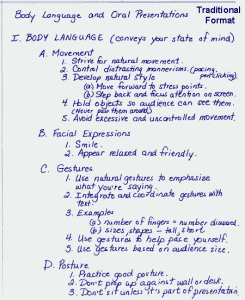 Body Language and Oral Presentations
Traditional
Format
I. BODY LANGUAGE (conveys your state of mind)
A. Movement
1. Strive for natural movement.
2. Control distracting mannerisms. (pacing,
3. Develop natural style
(a) Move forward to stress points.
(b) Step back and focus attention on screen.
4. Hold objects so audience can see them.
(Never pass them around)
5. Avoid excessive and uncontrolled movement.
B. Facial Expressions
1. Smile.
2. Appear relaxed and friendly.
C. Gestures
1. Use natural gestures to emphasize
what you're saying.
2. Integrate and coordinate gestures with
text.
3. Examples
(a) number of fingers = number discussed.
(b) sizes, shapes - tall, short
4. Use gestures to help pace yourself.
5. Use gestures based on audience size.
D. Posture
1. Practice good posture.
2. Don't prop up against wall or desk.
3. Don't sit unless it's part of presentation